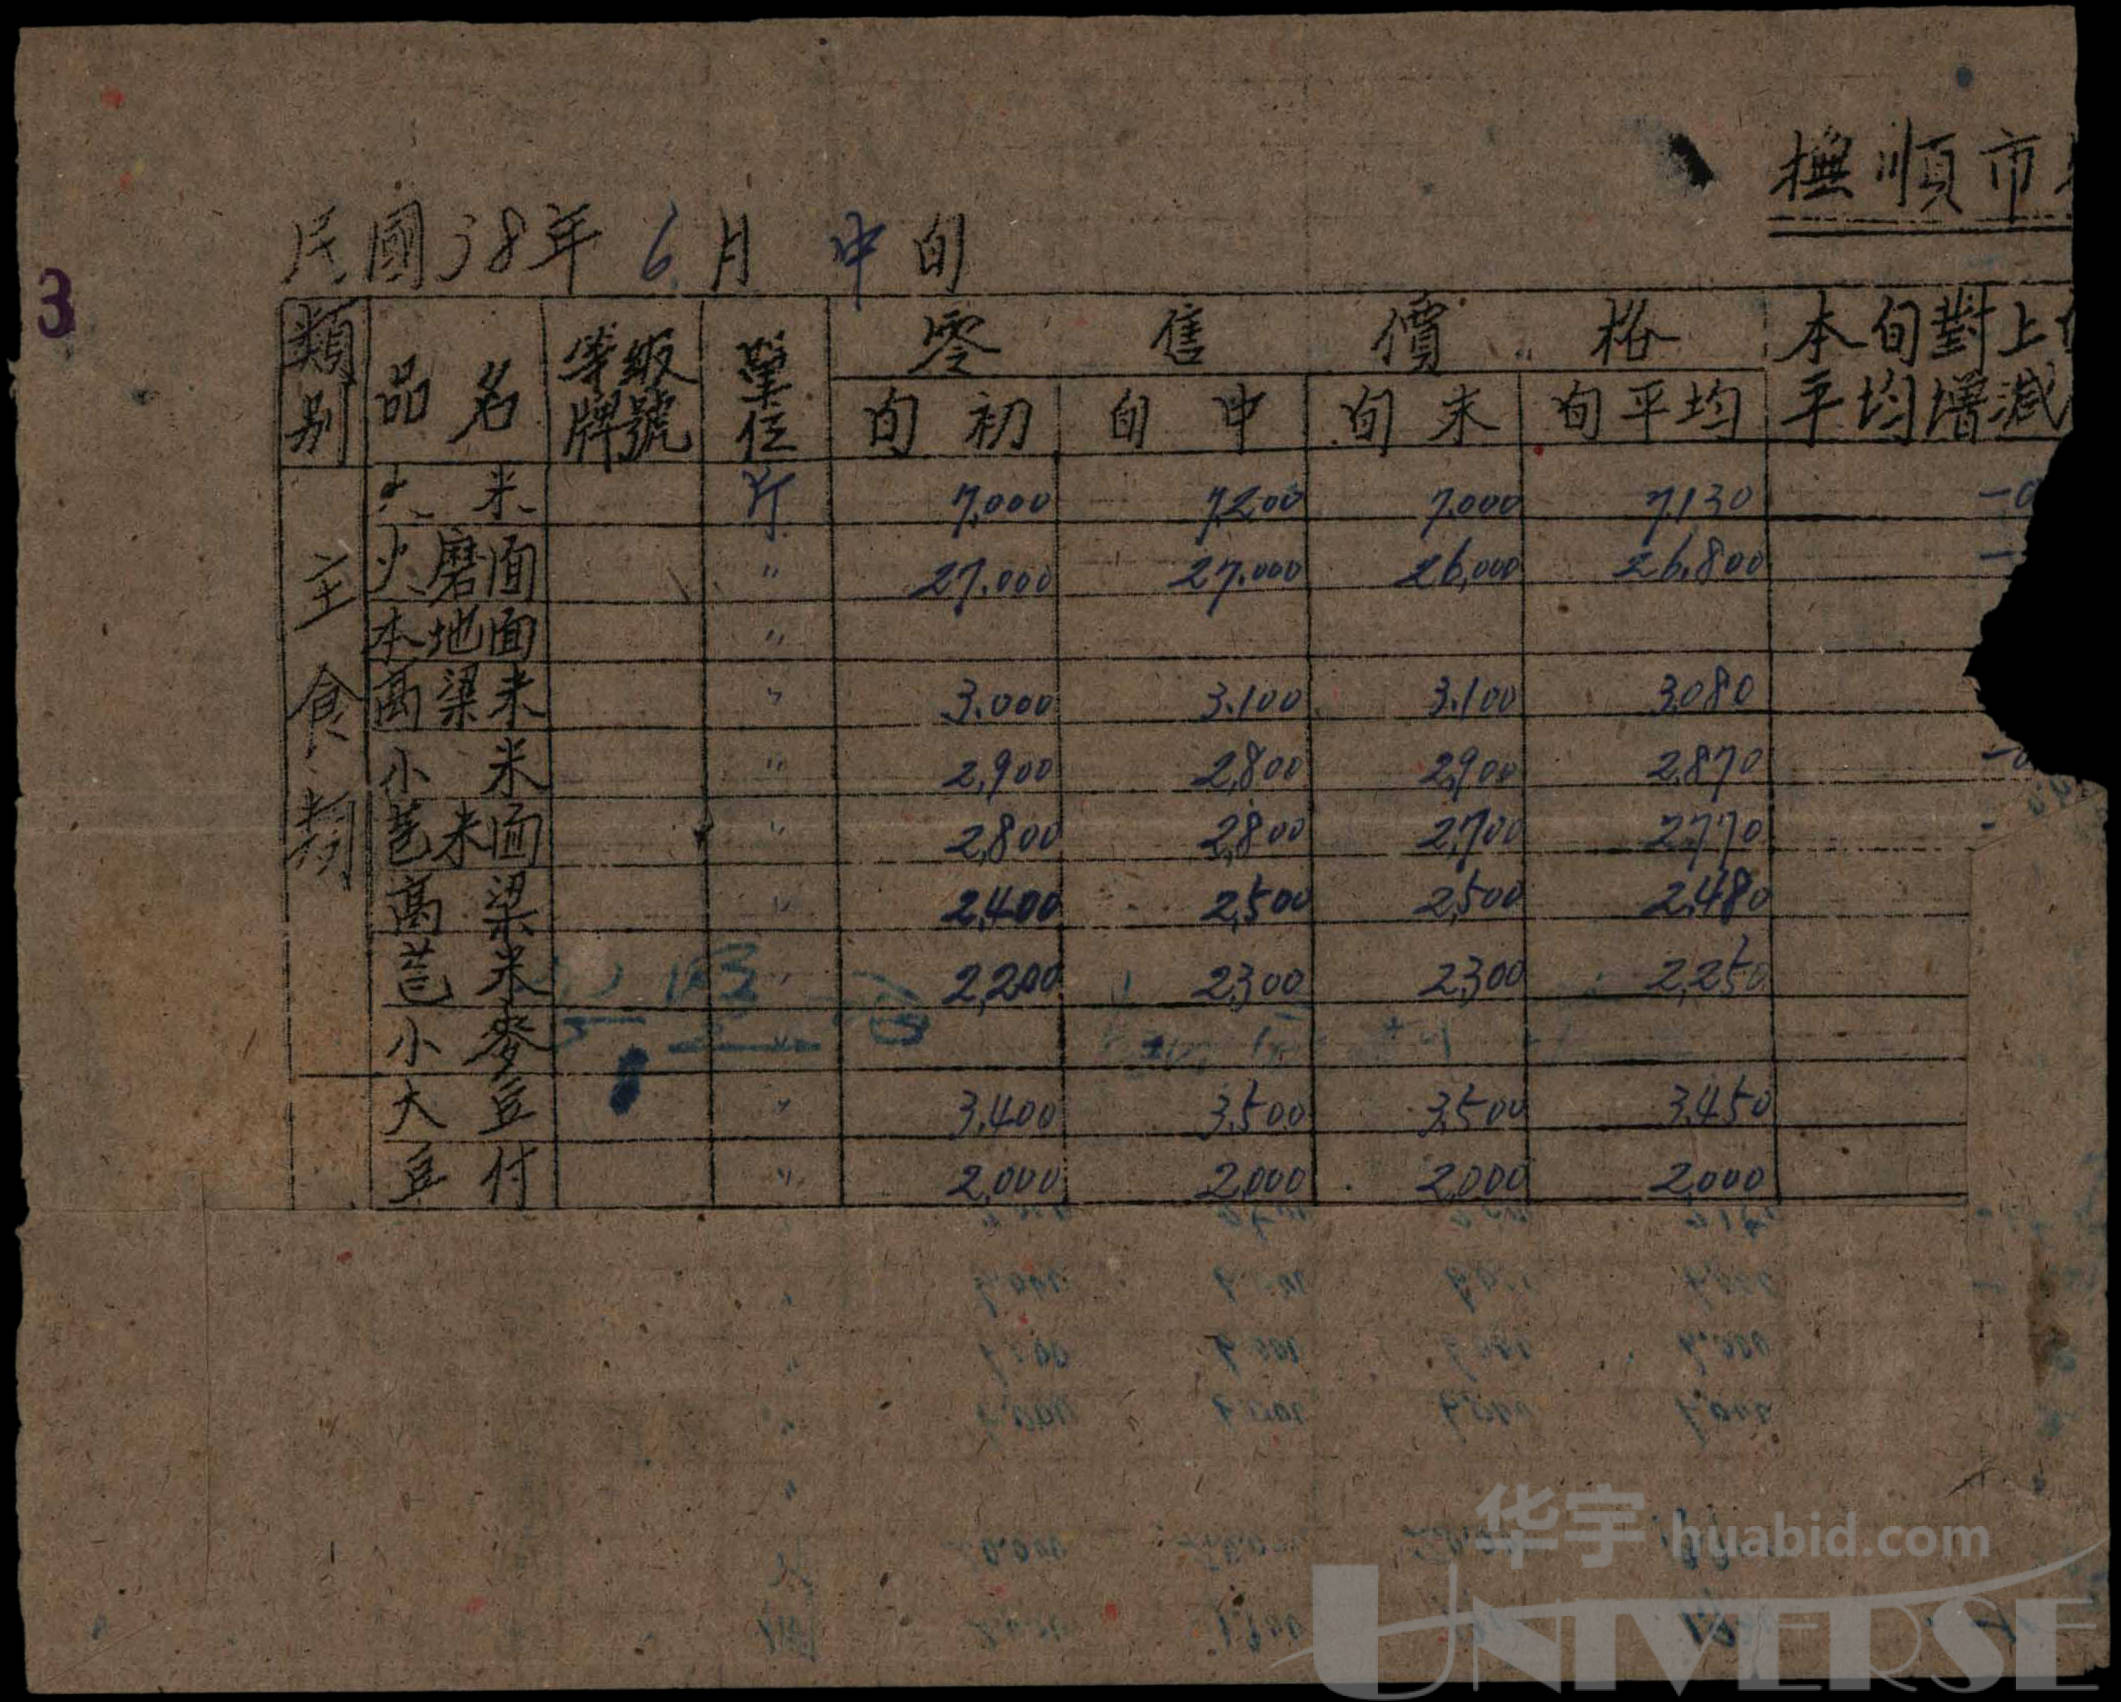 撫順市
民國38年 6月 中旬
3
類別 品名 等級牌號 單位 零售價格 本旬對上
旬初 旬中 旬末 旬平均 平均增減
主食類
大米 斤 7,000 7,200 7,000 7,130
火磨面 〃 27,000 27,000 26,000 26,800
本地面 〃
高梁米 〃 3,000 3,100 3,100 3,080
小米 〃 2,900 2,800 2,900 2,870
苞米面 〃 2,800 2,800 2,700 2,770
高梁 〃 2,400 2,500 2,500 2,480
苞米 〃 2,200 2,300 2,300 2,250
小麥 〃
大豆 〃 3,400 3,500 3,500 3,450
豆付 〃 2,000 2,000 2,000 2,000
华宇 huabid.com
UNIVERSE